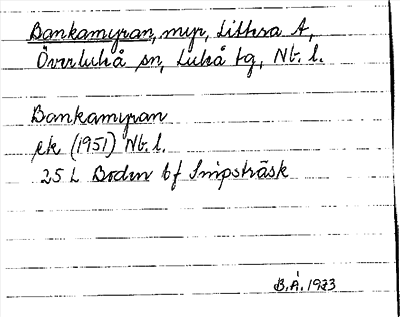 Bankamyran, myr, Littera A,
Överluleå sn, Luleå tg, Nb. l.
Bankamyran
ek (1951) Nb. l.
25 L Boden bf Smipsträsk
B.Å. 1973